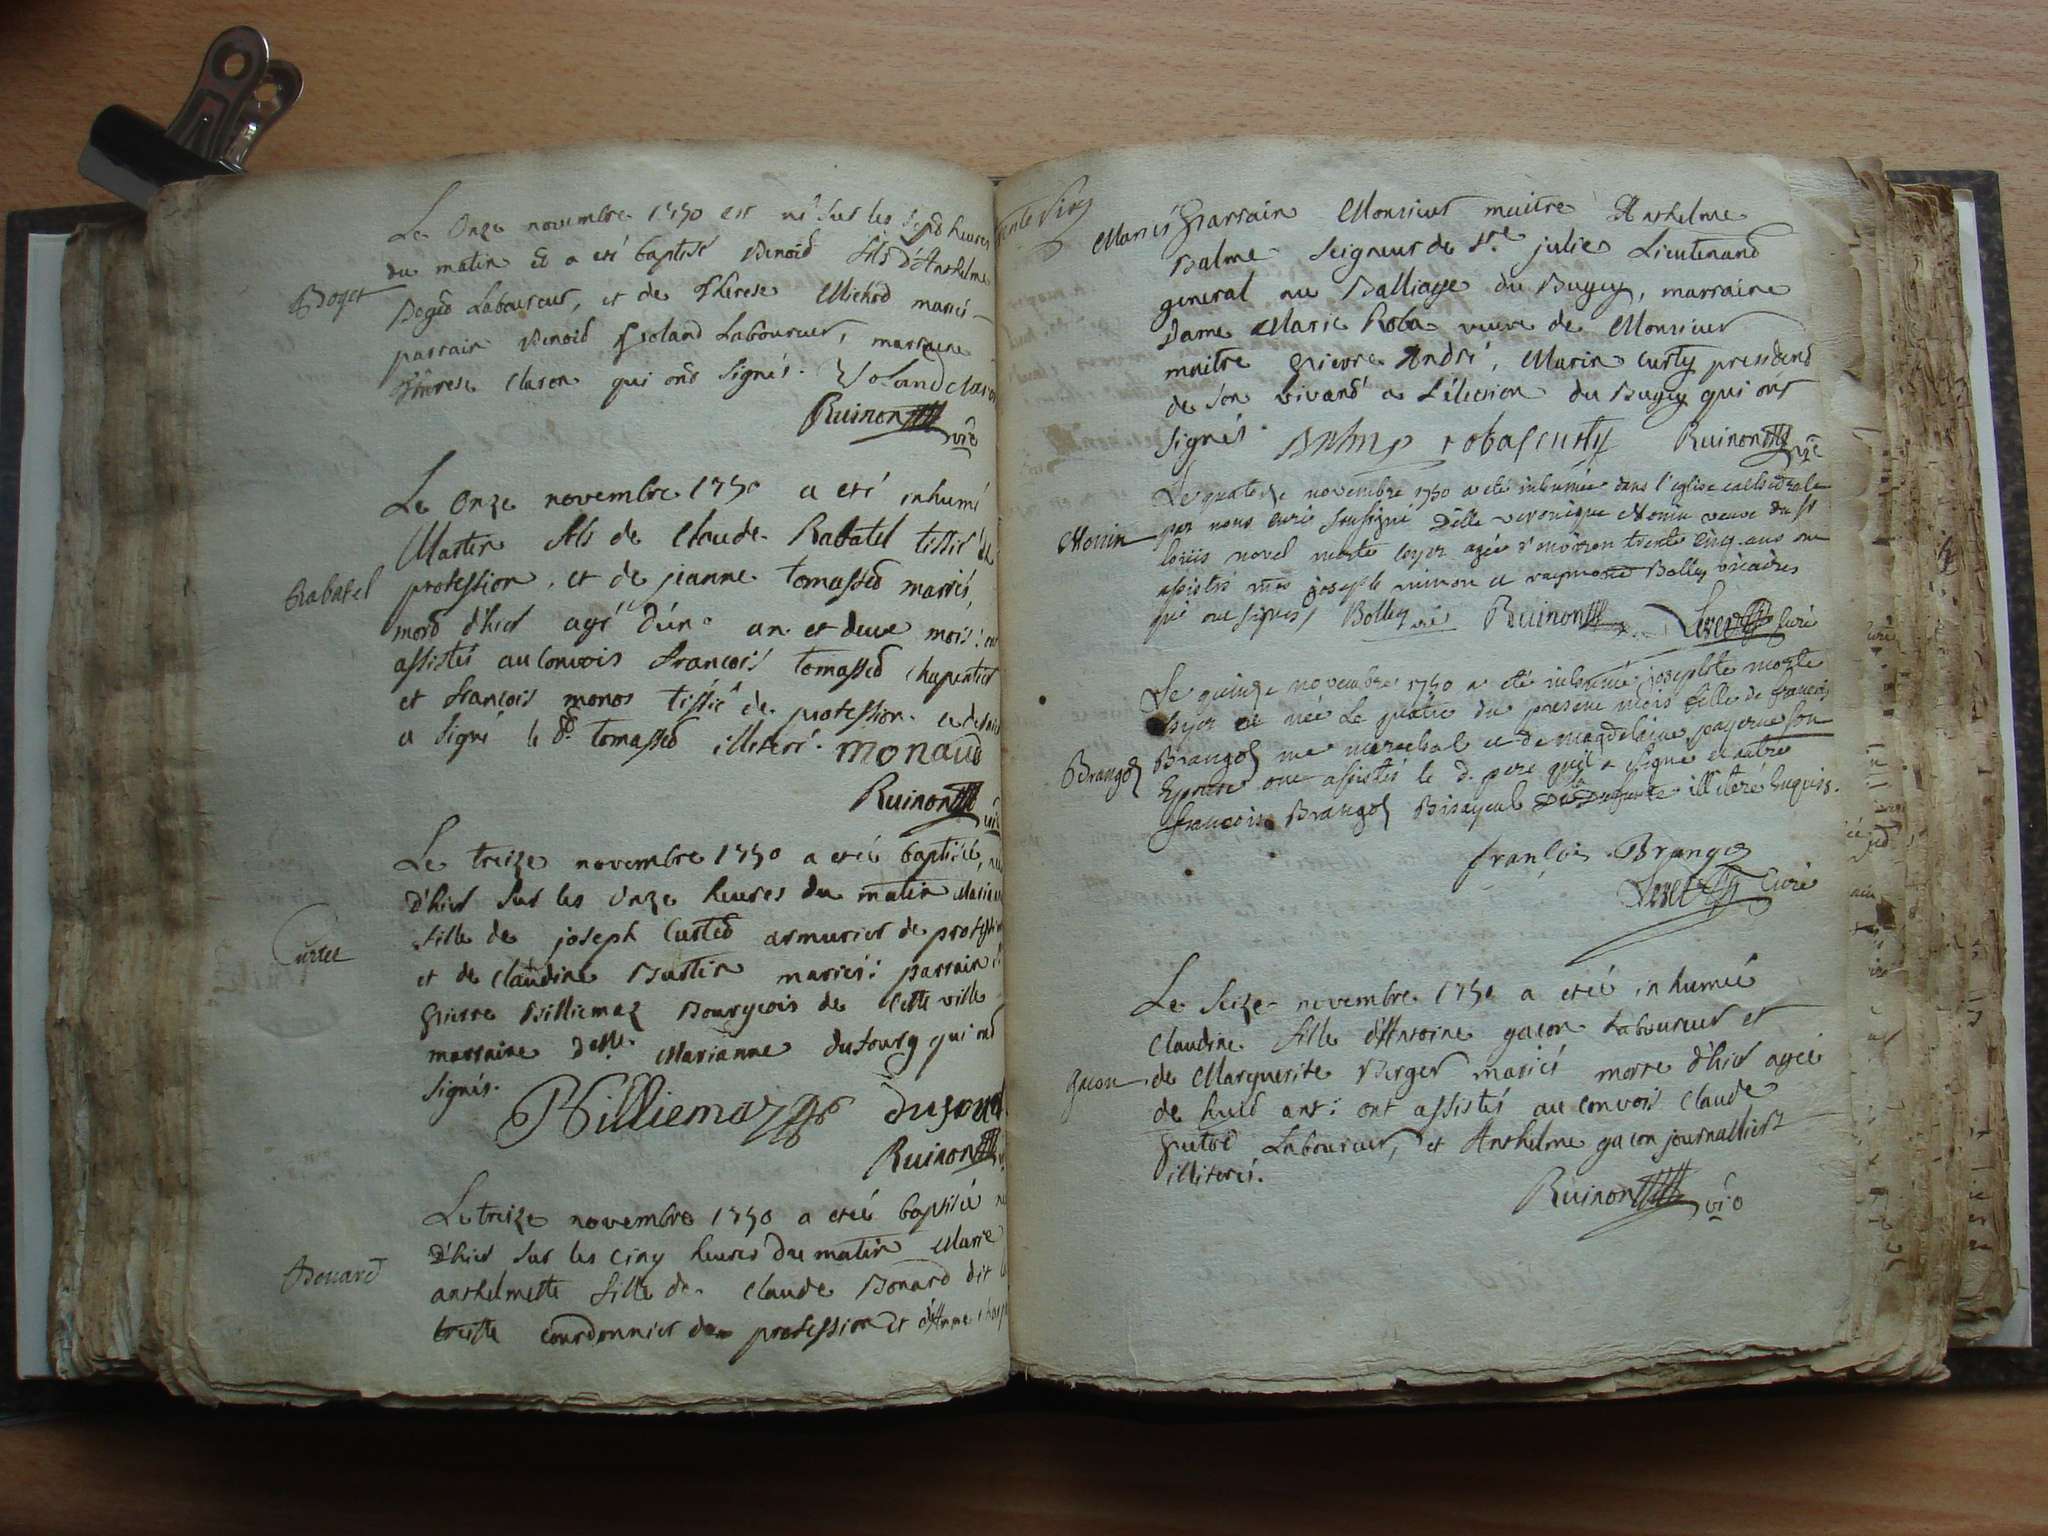 Le Onze novembre 1750 est né sur les sept heures
du matin et a eté baptisé Benoid fils D'Anthelme
Boget
Boged Laboureur, et de Therese Michod mariés
parrain Benoid Voland Laboureur, marraine
Therese claron qui ont signés. Voland claron
Ruinon vic
Le Onze novembre 1750 a eté inhumé
Martin fils de Claude Rabatel tissier de
Rabatel
profession, et de jeanne tomassed mariés,
mord d'hier agé d'un an et deux mois: ont
assistés au Convois francois tomassed chapentier
et francois monos tissier de profession
a signé le d. tomassed illiteré. monaud
Ruinon vic
Le treize novembre 1750 a eteé baptisée, née
D'hier sur les Onze heures du matin
fille de joseph Curted armurier de profession
Curtet
et de Claudine Burtin mariés: parrain
pierre Billiemaz Bourgeois de Cette ville
marraine delle. Marianne dufourg qui ont
signés.
Billiemaz dufour
Ruinon
Le treize novembre 1750 a eteé baptisée née
D'hier sur les cinq heures du matin Marie
Bonard
anthelmette fille de Claude Bonard dit
courdonnier de profession et d'Anne
Mariés parrain Monsieur maitre Anthelme
Balme Seigneur de Ste julie Lieutenand
general au Balliage du Bugey, marraine
Dame Marie Roba veuve de Monsieur
maitre pierre André, Marin Curty presidend
de son vivand a L'élection du Bugey qui ont
signés. Balme robascurty Ruinon vic
Le quatorze novembre 1750 a eté inhumée dans l'eglise cathedrale
par nous curé soussigné Delle veronique Monin veuve du sr
Monin
louis novel morte hyer agée d'environ trente cinq ans ont
assistés mes joseph ruinon et raymond Bolley vicaires
qui ont signés, Bolley vic Ruinon curé
Le quinze novembre 1750 a eté inhumée josephte morte
hyer et née Le quatre du present mois fille de francois
Brangos
Brangos me marechal et de magdelaine payerne son
Epouse ont assistés le d. pere qui a signé et autre
francois Brangos Bisayeul illiteré Enquis.
françois Brangos
curé
Le Seize novembre 1750 a eteé inhumée
Claudine fille d'Antoine gacon Laboureur et
gacon
de Marguerite Berger mariés morte d'hier agée
de huid ans: ont assistés au convois Claude
Laboureur, et Anthelme gacon journallier
illiterés.
Ruinon vic